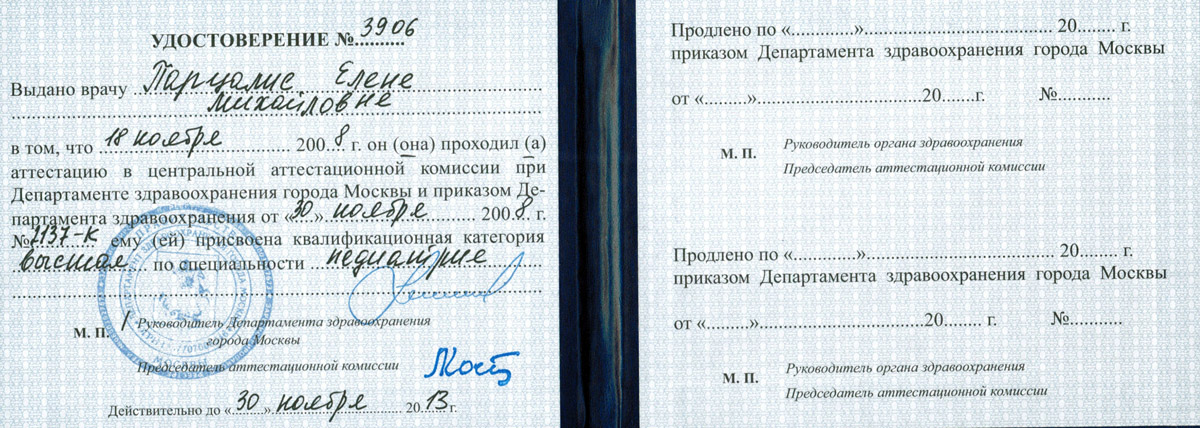 УДОСТОВЕРЕНИЕ № 3906
Выдано врачу Парцалис Елене
Михайловне
в том, что 18 ноября 2008 г. он (она) проходил (а)
аттестацию в центральной аттестационной комиссии при
Департаменте здравоохранения города Москвы и приказом Де-
партамента здравоохранения от «30» ноября 2008 г.
№ 1137-К ему (ей) присвоена квалификационная категория
высшая по специальности педиатрие
М. П. Руководитель Департамента здравоохранения
города Москвы
Председатель аттестационной комиссии
Действительно до «30» ноября 2013 г.
Продлено по «.............»............................................ 20........ г.
приказом Департамента здравоохранения города Москвы
от «.........»...................................20.......г. №...........
М. П. Руководитель органа здравоохранения
Председатель аттестационной комиссии
Продлено по «.............»............................................ 20........ г.
приказом Департамента здравоохранения города Москвы
от «.........»...................................20........ г. №...........
М. П. Руководитель органа здравоохранения
Председатель аттестационной комиссии